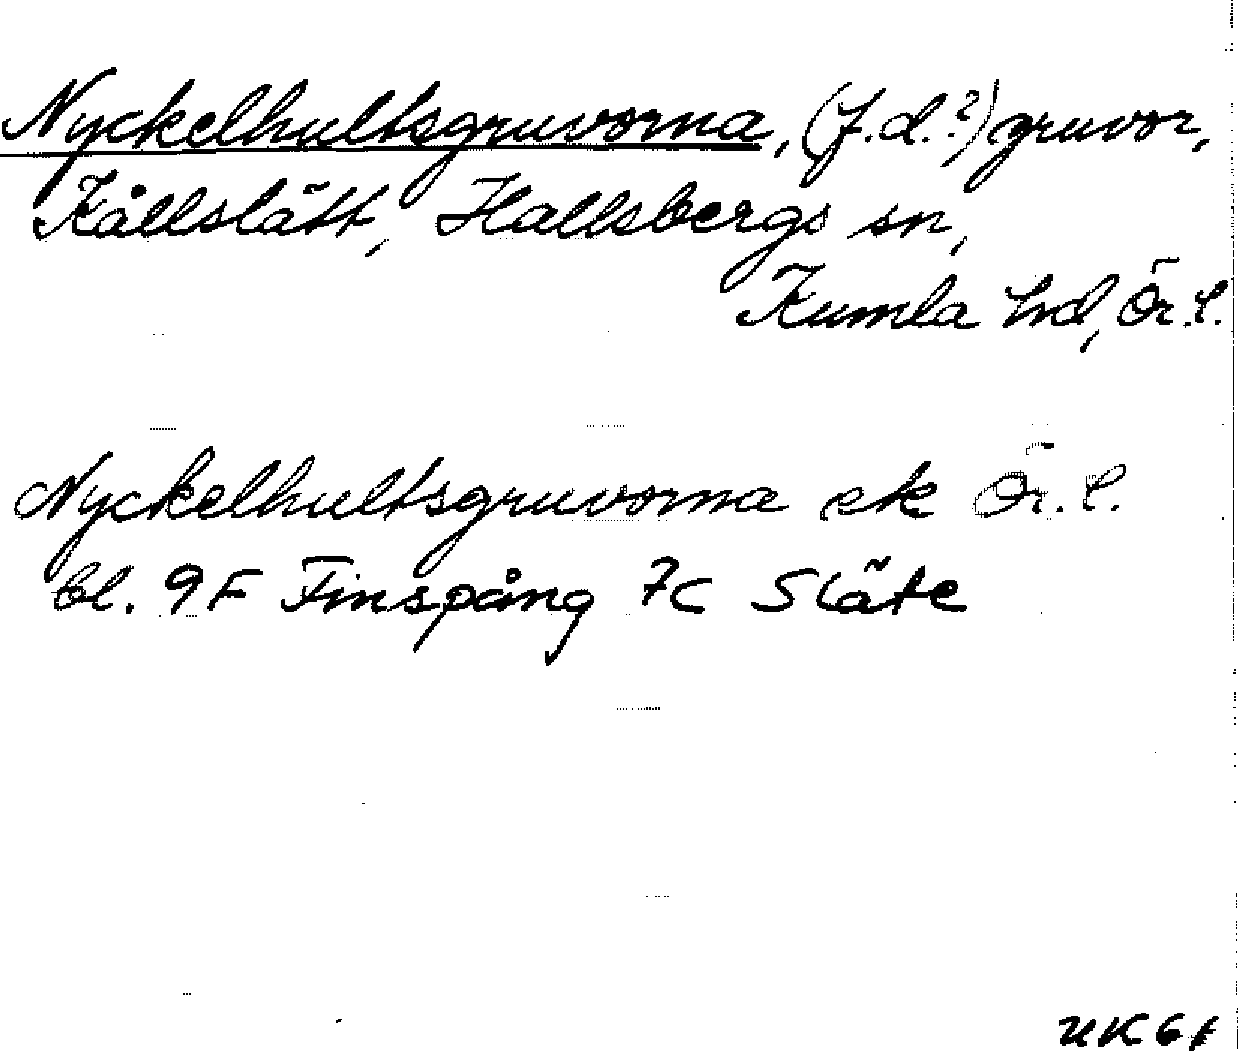 Nyckelhultsgruvorna, (f.d.?) gruvor,
Kållslätt, Hallsbergs sn,
Kumla hd, Ör.l.
Nyckelhultsgruvorna ek Ör.l.
bl. 9F Finspång 7c Släte
UK61